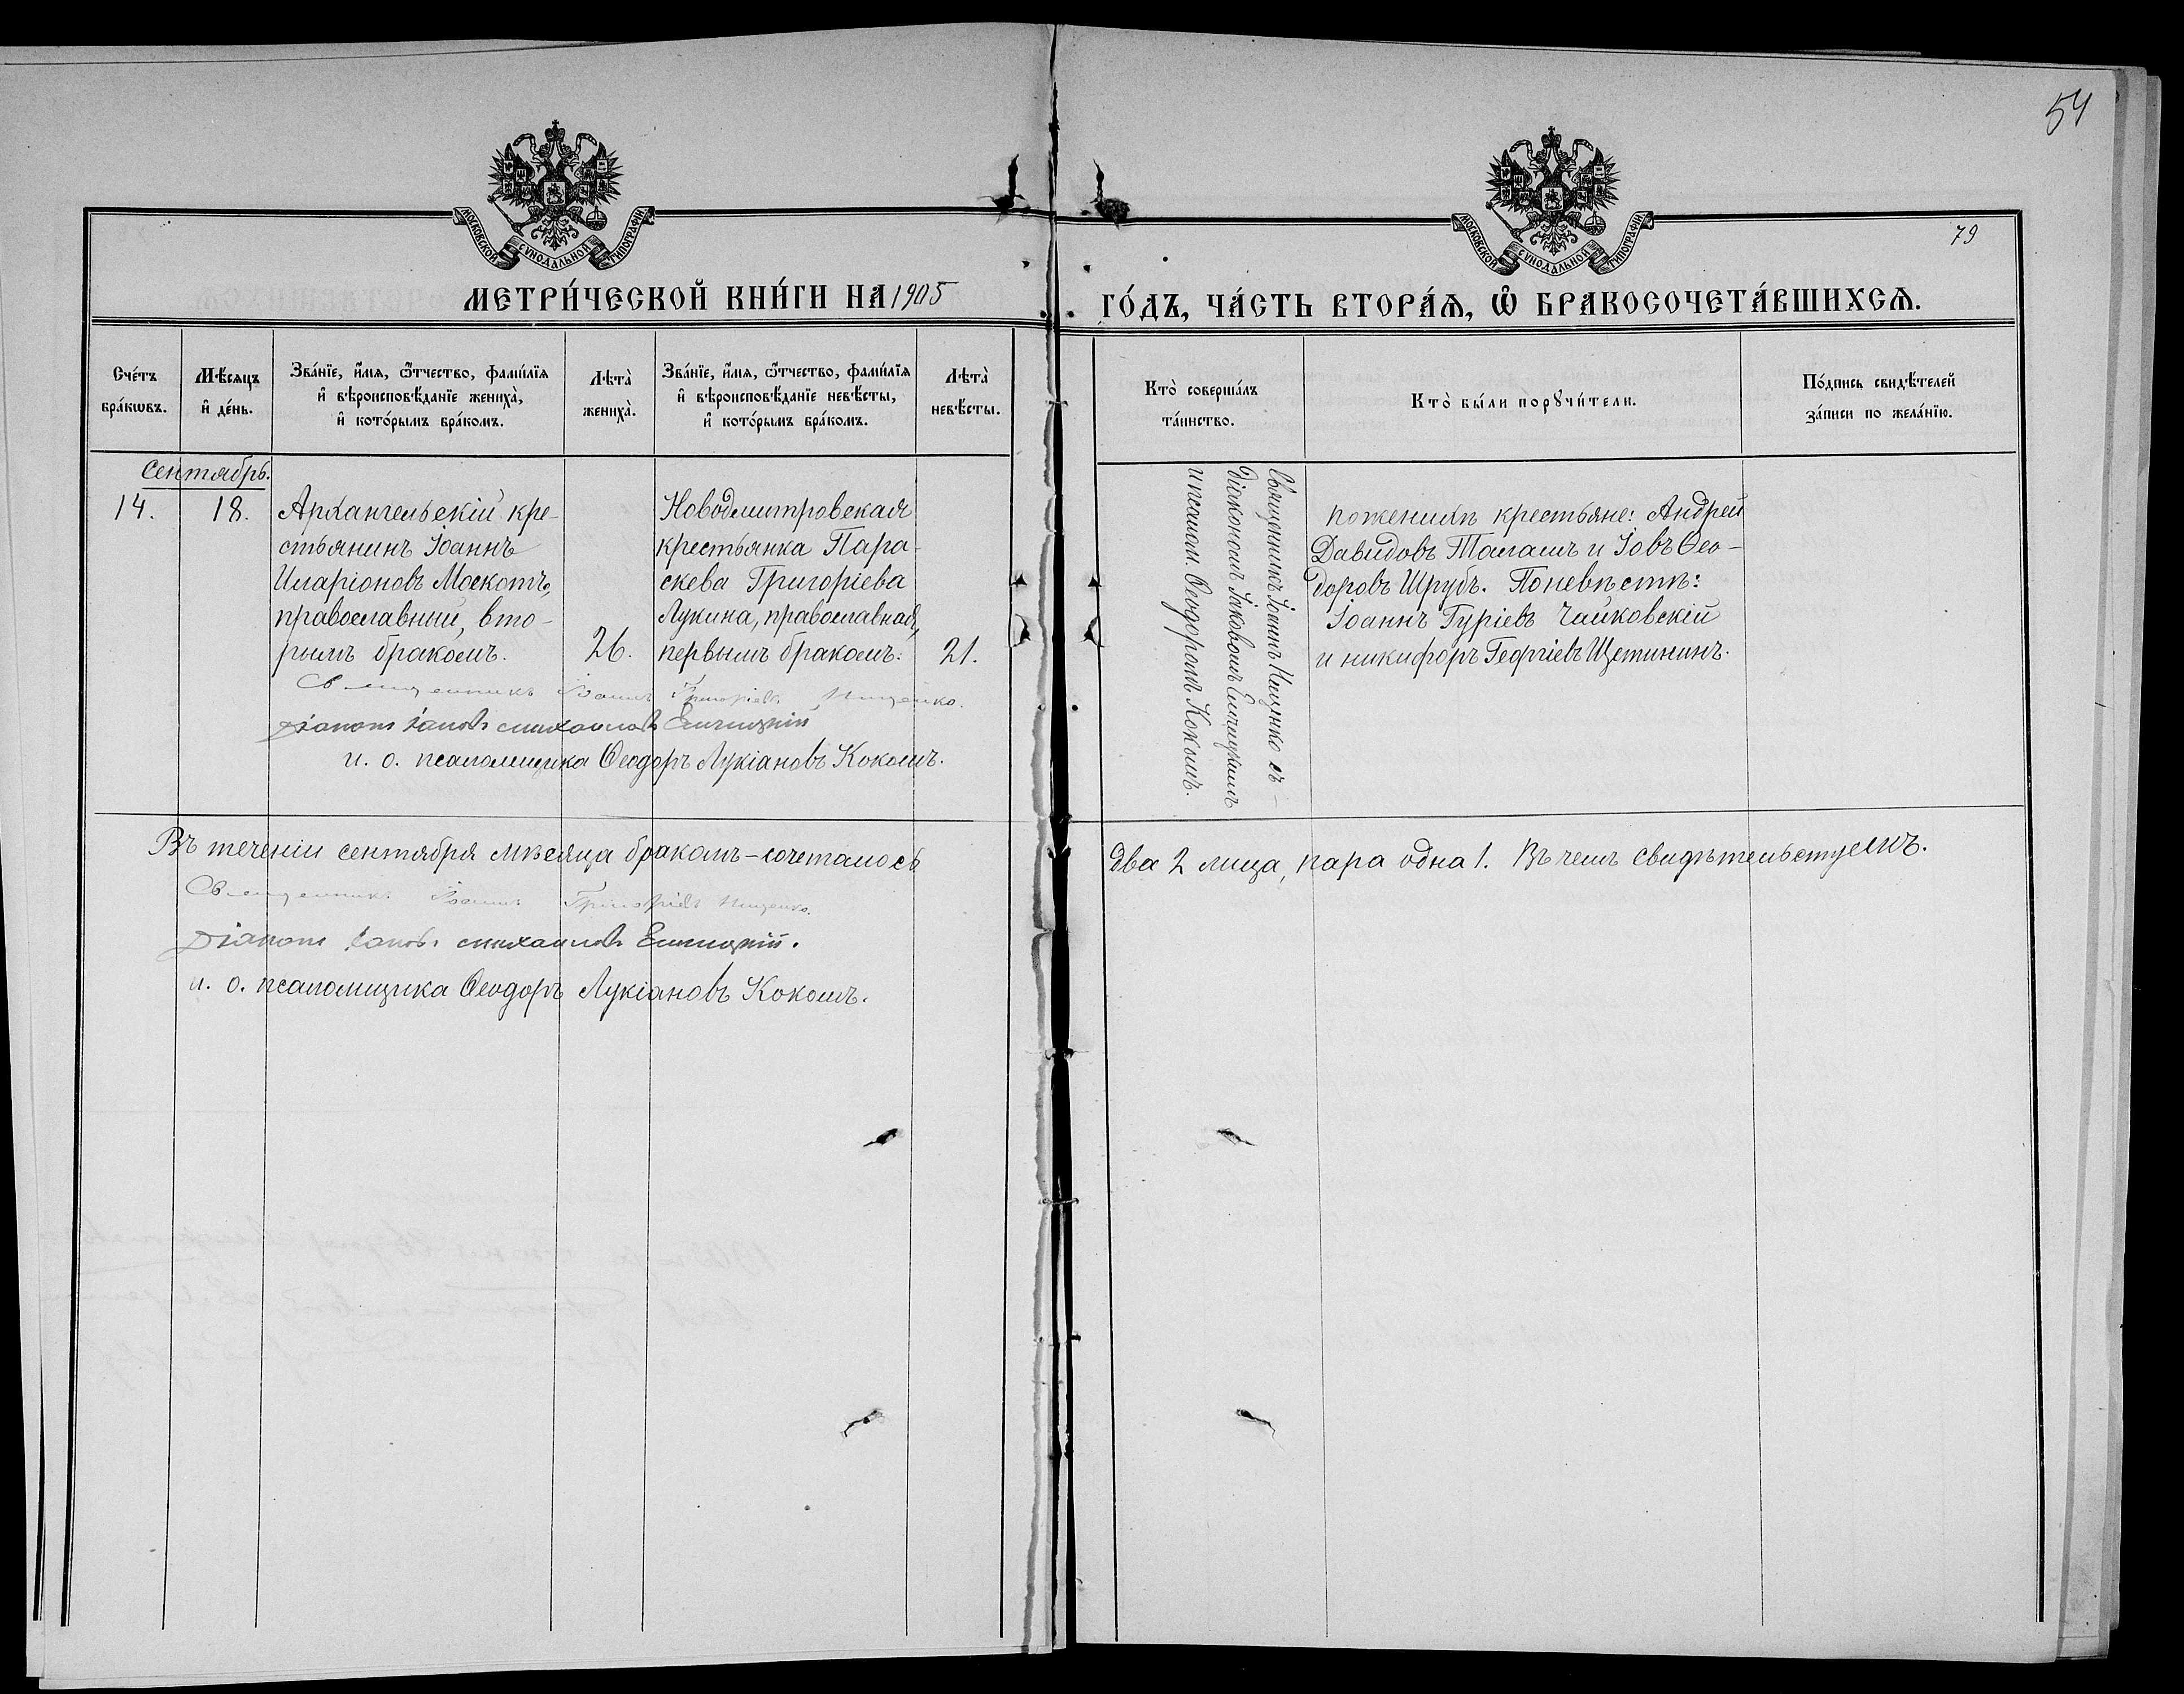 54
79
МОСКОВСКОЙ СѴНОДАЛЬНОЙ ТИПОГРАФІИ
МОСКОВСКОЙ СѴНОДАЛЬНОЙ ТИПОГРАФІИ
МЕТРИ́ЧЕСКОЙ КНИ́ГИ НА 1905
ГО́ДЪ, ЧА́СТЬ ВТОРА́Ѧ, Ѡ҆ БРАКОСОЧЕТА́ВШИХСѦ.
Сче́тъ бра́кѡвъ.
Мѣ́сяцъ и҆ де́нь.
Зва́нїе, и҆́мѧ, ѻ҆́тчество, фами́лїѧ
и҆ вѣроисповѣ́данїе жениха̀,
и҆ кото́рымъ бра́комъ.
Лѣта̀ жениха̀.
Зва́нїе, и҆́мѧ, ѻ҆́тчество, фами́лїѧ
и҆ вѣроисповѣ́данїе невѣ́сты,
и҆ кото́рымъ бра́комъ.
Лѣта̀ невѣ́сты.
Кто̀ соверша́лъ
та́инство.
Кто̀ бы́ли порꙋчи́тели.
По́дпись свидѣ́телей
за́писи по жела́нїю.
Сентябрь.
14.
18.
Архангельскій кре-
стьянинъ Іоаннъ
Иларіоновъ Москотъ,
православный, вто-
рымъ бракомъ.
26.
Новодмитровская
крестьянка Пара-
скева Григоріева
Лукина, православная,
первымъ бракомъ.
21.
Священникъ Іоаннъ Нищенко съ
діакономъ Іаковомъ
и псалом. Ѳеодоромъ Кокошъ.
По женихѣ крестьяне: Андрей
Давидовъ Талашъ и Іовъ Ѳео-
доровъ Шрубъ. По невѣстѣ:
Іоаннъ Гуріевъ Чайковскій
и Никифоръ Георгіевъ Щетининъ.
Священникъ Іоаннъ Григоріевъ Нищенко.
Діаконъ Іаковъ Михаиловъ
и. о. псаломщика Ѳеодоръ Лукіановъ Кокошъ.
Въ теченіи сентября мѣсяца бракомъ-сочеталось
два 2 лица, пара одна 1. Въ чемъ свидѣтельствуемъ.
Священникъ Іоаннъ Григоріевъ Нищенко.
Діаконъ Іаковъ Михаиловъ
и. о. псаломщика Ѳеодоръ Лукіановъ Кокошъ.